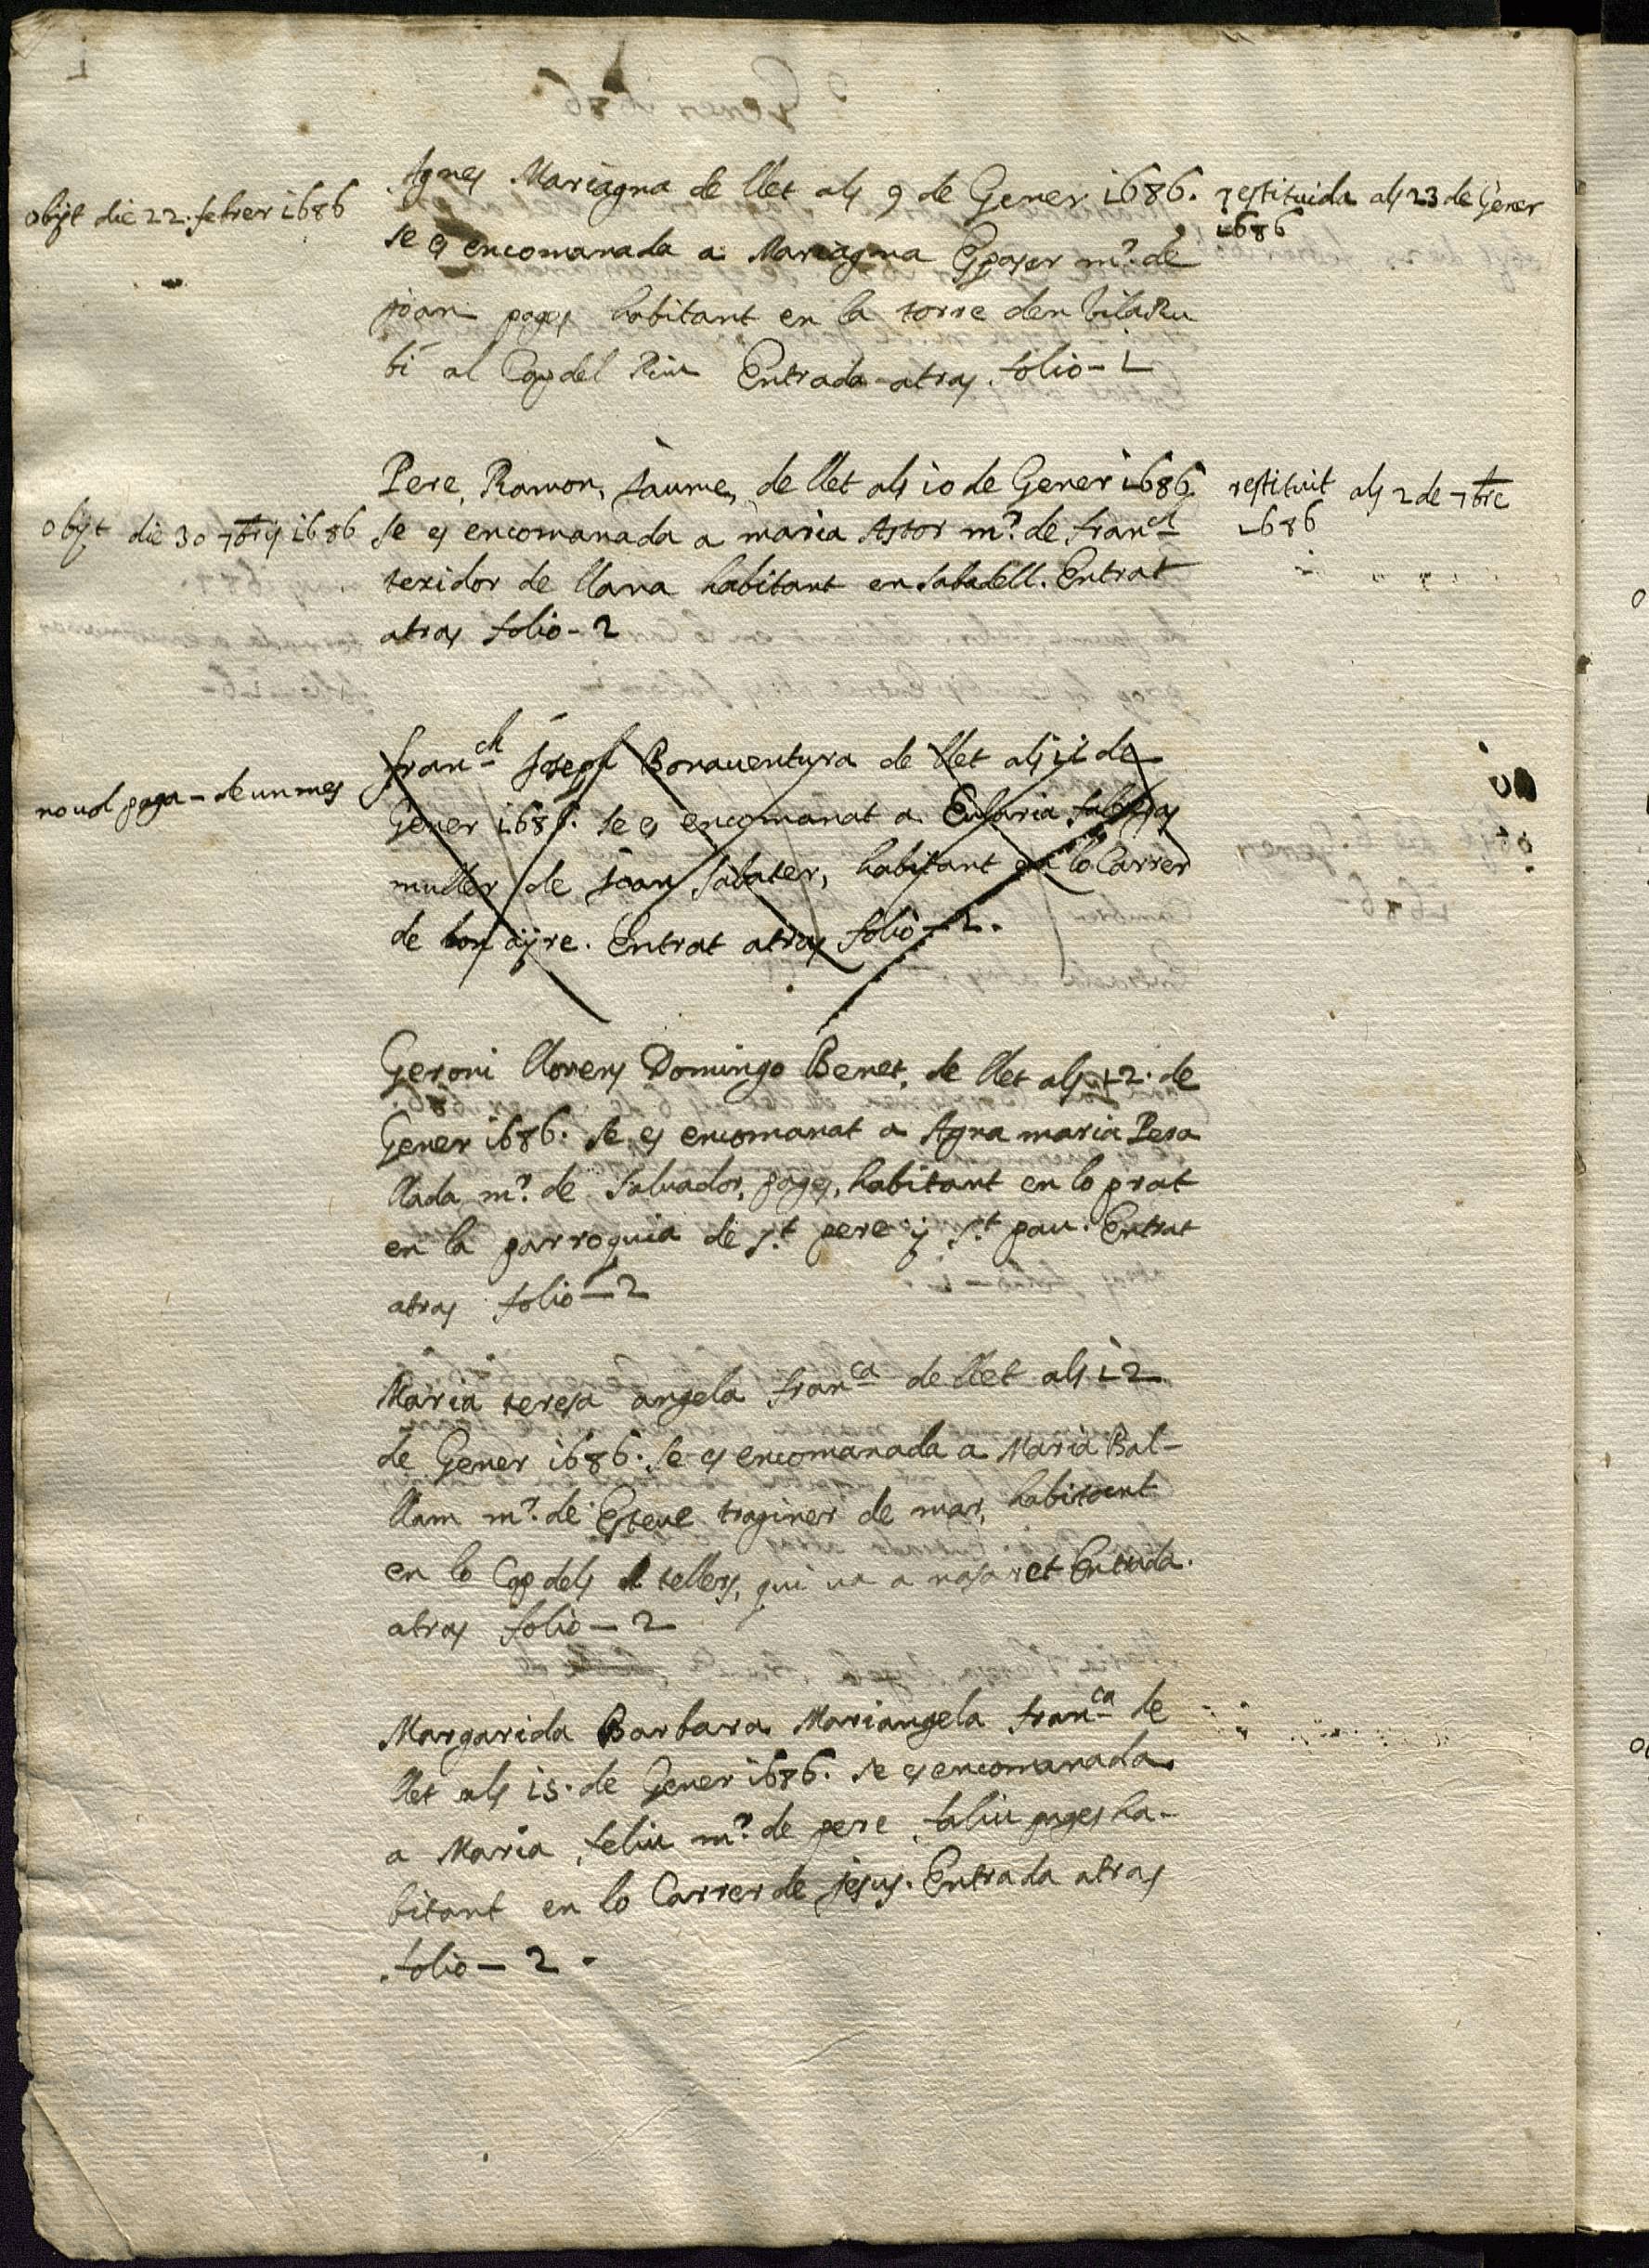 Agnes Mariagna de llet als 9 de Gener 1686.
se es encomanada a Mariagna Esparer mr. de
joan pages habitant en la torre den VilaRu
bi al Cap del Riu Entrada atras folio - 1
obijt die 22. febrer 1686
restituida als 23 de Gener
1686
Pere, Ramon, Jaume, de llet als 10 de Gener 1686
se es encomanada a maria Astor mr. de franch
texidor de llana habitant en Sabadell. Entrat
atras folio - 2
obijt die 30 7bris 1686
restituit als 2 de 7bre
1686
franch Joseph Bonauentura de llet als 11 de
Gener 1686. se es encomanat a Eularia
muller de Joan Sabater, habitant en lo Carrer
de bon ayre. Entrat atras folio - 2.
no vol paga - de un mes
Geroni llorens Domingo Benet, de llet als 12. de
Gener 1686. se es encomanat a Agna maria Pera
llada mr. de Saluador, pages, habitant en lo prat
en la parroquia de St pere y St pau. Entrat
atras folio - 2
Maria teresa angela franca de llet als 12
de Gener 1686. se es encomanada a Maria Bal-
llam mr. de Esteue traginer de mar, habitant
en lo Cap dels tellers, qui ua a nasaret Entrada
atras folio - 2
Margarida Barbara Mariangela franca de
llet als 15. de Gener 1686. se es encomanada
a Maria feliu mr. de pere faliu pages ha-
bitant en lo Carrer de jesus. Entrada atras
folio - 2.